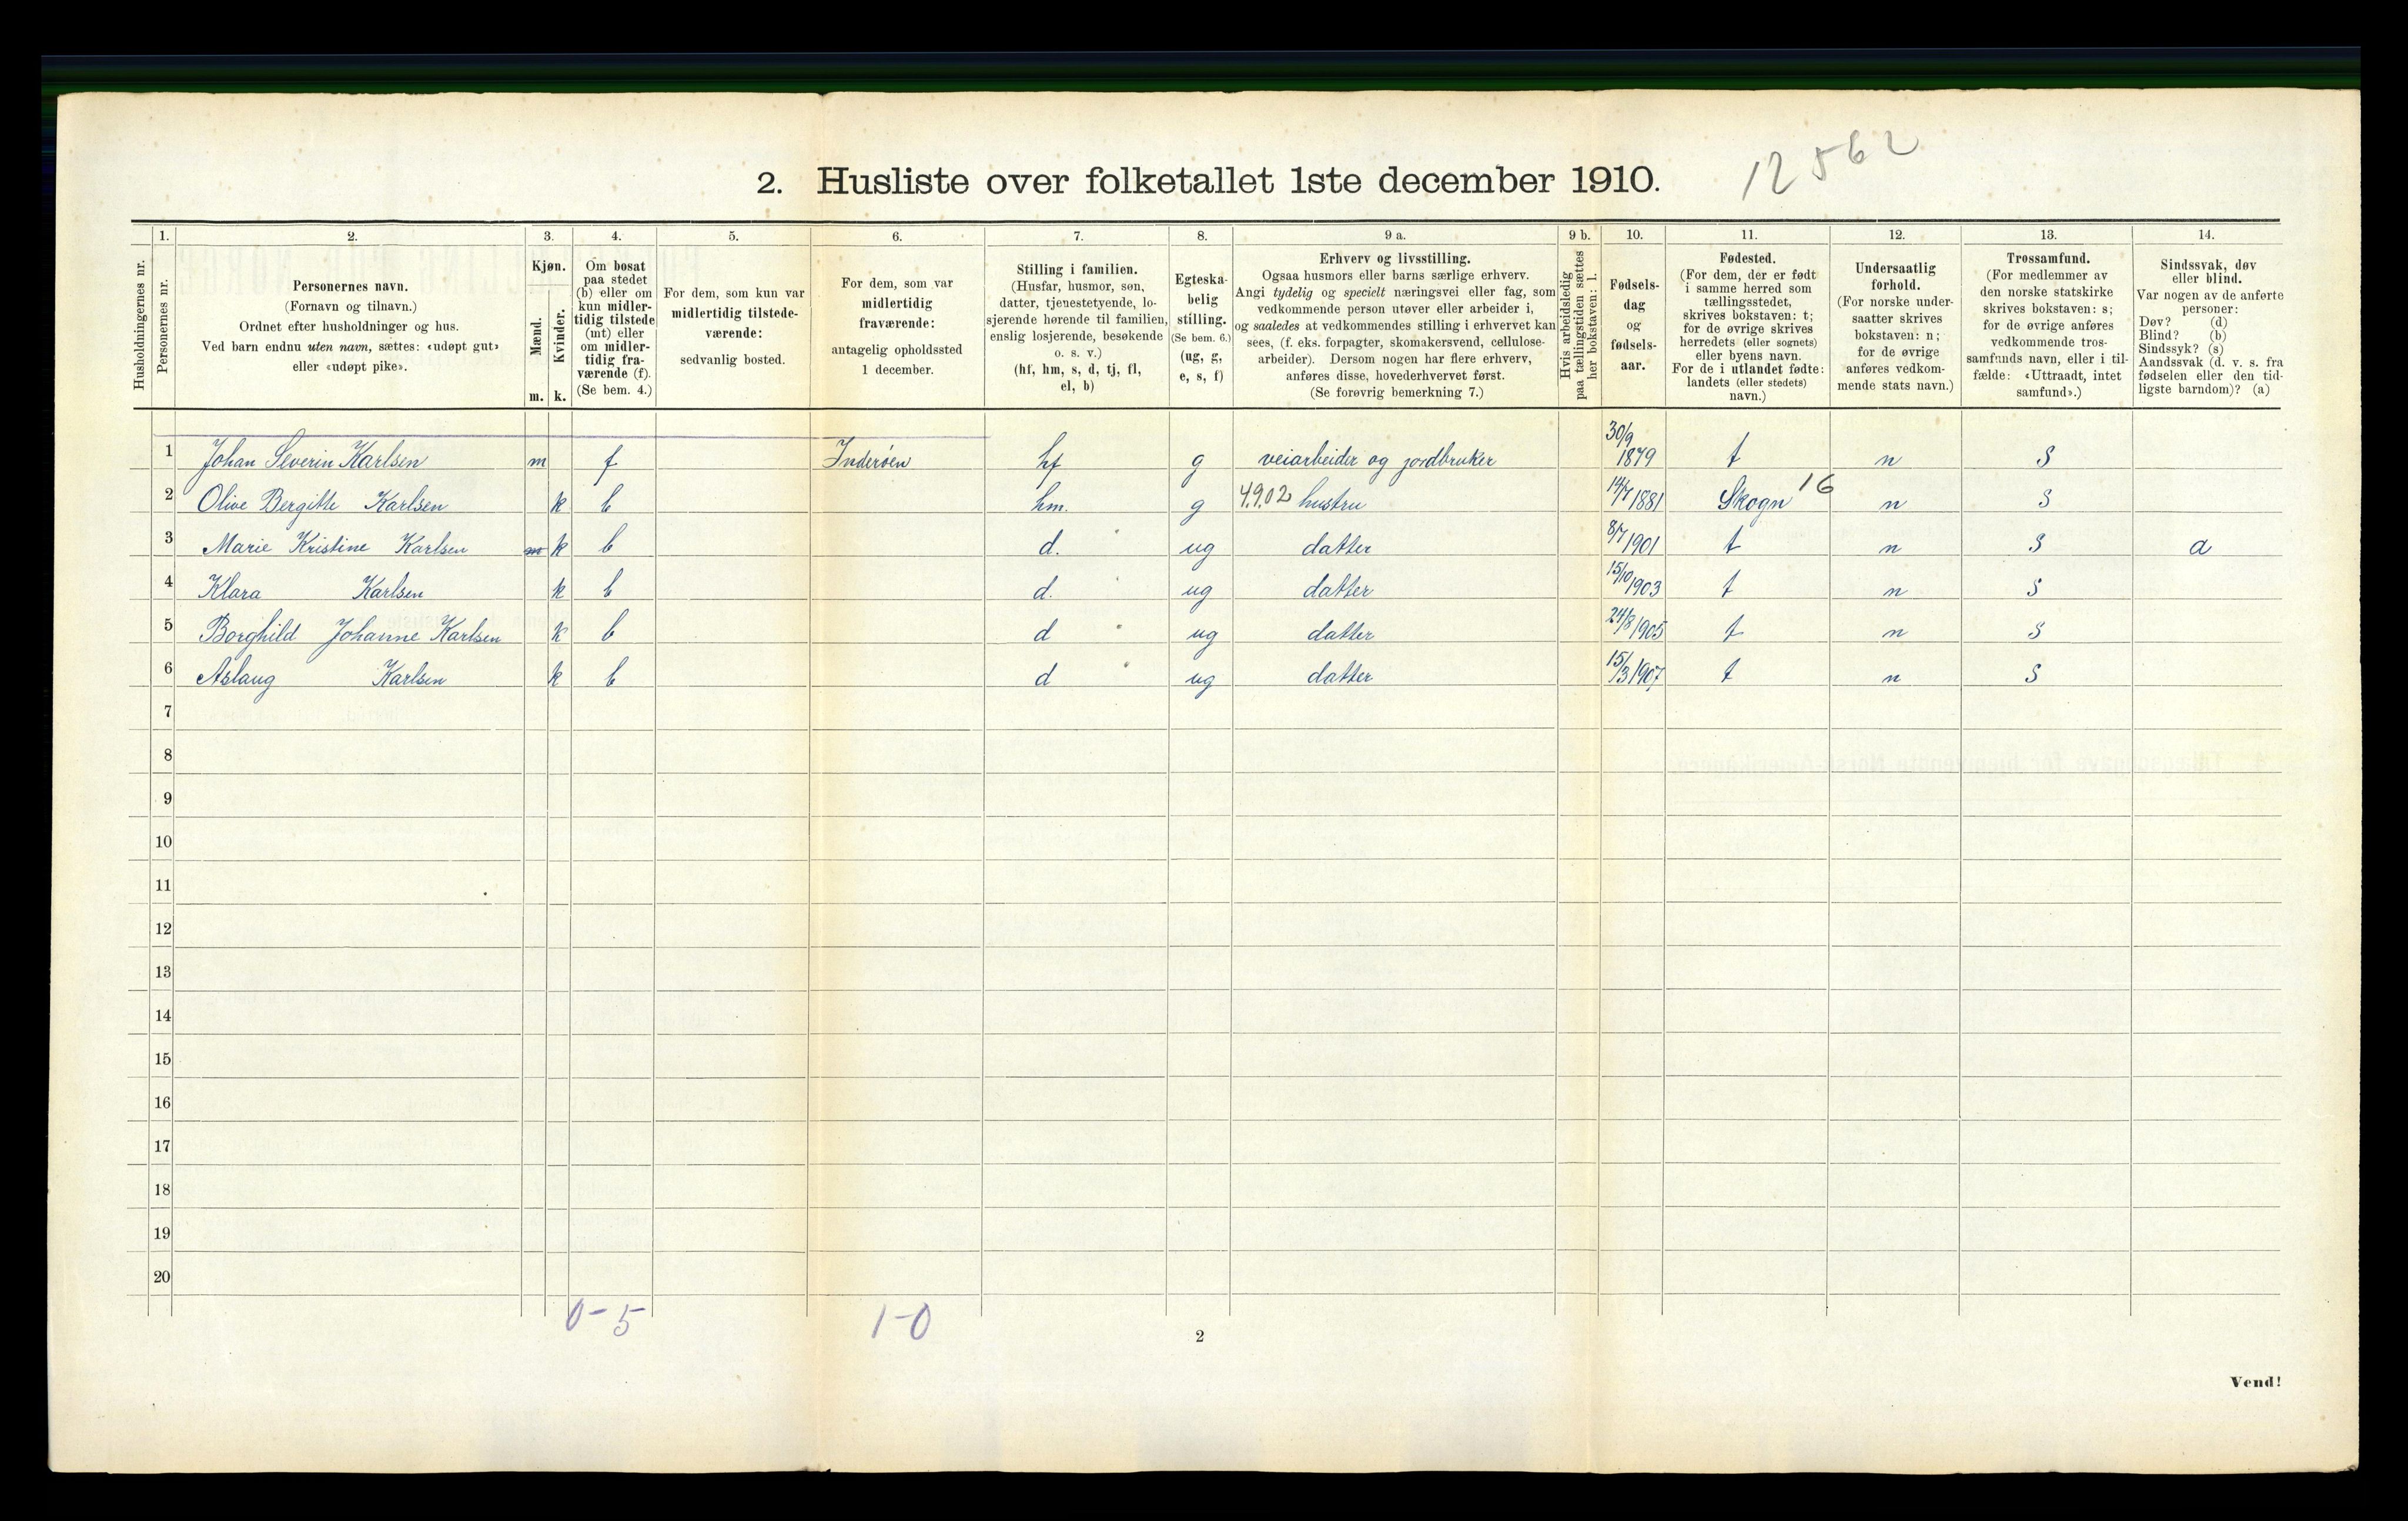 12562
2. Husliste over folketallet 1ste december 1910.
Husholdningernes nr.
1.
Personernes nr.
2.
Personernes navn.
(Fornavn og tilnavn.)
Ordnet efter husholdninger og hus.
Ved barn endnu uten navn, sættes: «udøpt gut»
eller «udøpt pike».
3.
Kjøn.
Mænd.
Kvinder.
m. k.
4.
Om bosat
paa stedet
(b) eller om
kun midler-
tidig tilstede
(mt) eller
om midler-
tidig fra-
værende (f).
(Se bem. 4.)
5.
For dem, som kun var
midlertidig tilstede-
værende:
sedvanlig bosted.
6.
For dem, som var
midlertidig
fraværende:
antagelig opholdssted
1 december.
7.
Stilling i familien.
(Husfar, husmor, søn,
datter, tjenestetyende, lo-
sjerende hørende til familien,
enslig losjerende, besøkende
o. s. v.)
(hf, hm, s, d, tj, fl,
el, b)
8.
Egteska-
belig
stilling.
(Se bem. 6.)
(ug, g,
e, s, f)
9 a.
Erhverv og livsstilling.
Ogsaa husmors eller barns særlige erhverv.
Angi tydelig og specielt næringsvei eller fag, som
vedkommende person utøver eller arbeider i,
og saaledes at vedkommendes stilling i erhvervet kan
sees, (f. eks. forpagter, skomakersvend, cellulose-
arbeider). Dersom nogen har flere erhverv,
anføres disse, hovederhvervet først.
(Se forøvrig bemerkning 7.)
9 b.
Hvis arbeidsledig
paa tællingstiden sættes
her bokstaven: l.
10.
Fødsels-
dag
og
fødsels-
aar.
11.
Fødested.
(For dem, der er født
i samme herred som
tællingsstedet,
skrives bokstaven: t;
for de øvrige skrives
herredets (eller sognets)
eller byens navn.
For de i utlandet fødte:
landets (eller stedets)
navn.)
12.
Undersaatlig
forhold.
(For norske under-
saatter skrives
bokstaven: n;
for de øvrige
anføres vedkom-
mende stats navn.)
13.
Trossamfund.
(For medlemmer av
den norske statskirke
skrives bokstaven: s;
for de øvrige anføres
vedkommende tros-
samfunds navn, eller i til-
fælde: «Uttraadt, intet
samfund».)
14.
Sindssvak, døv
eller blind.
Var nogen av de anførte
personer:
Døv? (d)
Blind? (b)
Sindssyk? (s)
Aandssvak (d. v. s. fra
fødselen eller den tid-
ligste barndom)? (a)
1 Johan Severin Karlsen m f Inderøen hf g veiarbeider og jordbruker 30/9 1879 t n S
2 Olive Bergitte Karlsen k b hm. g 4.9.02 hustru 14/7 1881 Skogn 16 n S
3 Marie Kristine Karlsen m k b d. ug datter 8/7 1901 t n S a
4 Klara Karlsen k b d. ug datter 15/10 1903 t n S
5 Borghild Johanne Karlsen k b d ug datter 24/8 1905 t n S
6 Aslaug Karlsen k b d ug datter 15/3 1907 t n S
7
8
9
10
11
12
13
14
15
16
17
18
19
20
0-5 1-0
2
Vend!